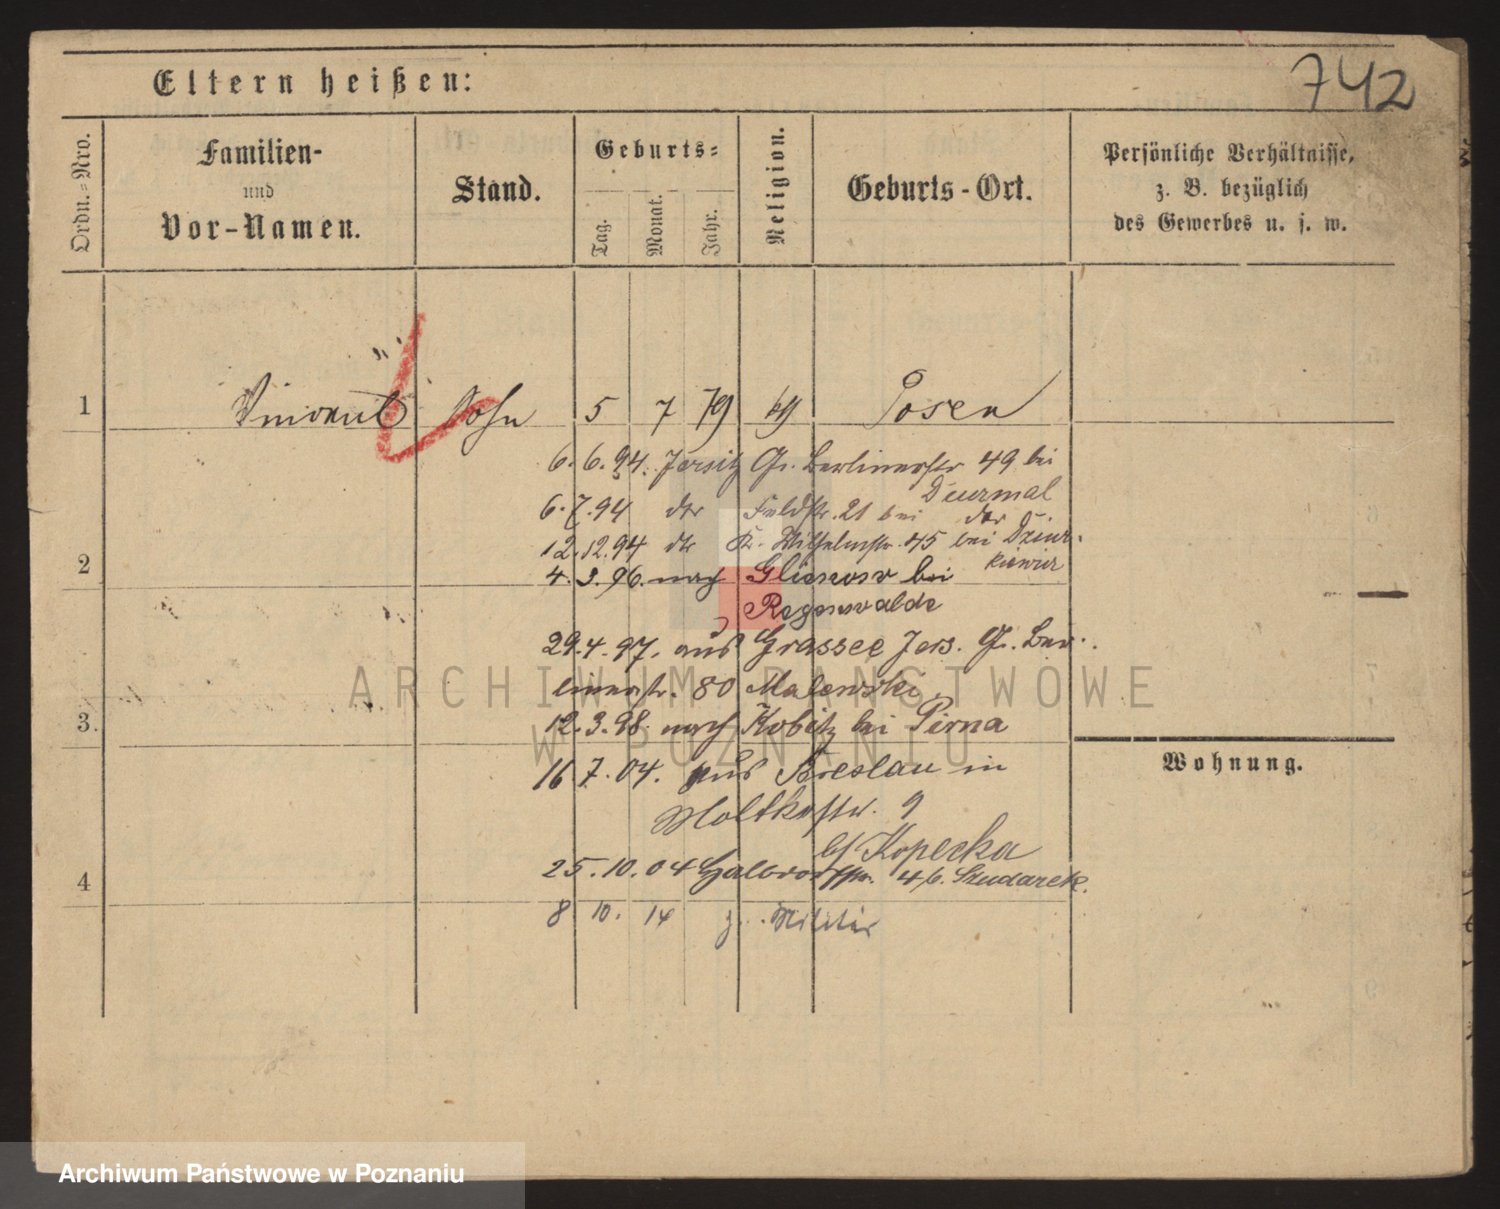 742
Eltern heißen:
Ordn.=Nro.
Familien-
und
Vor-Namen.
Stand.
Geburts=
Tag.
Monat.
Jahr.
Religion.
Geburts-Ort.
Persönliche Verhältnisse,
z. B. bezüglich
des Gewerbes u. s. w.
1 Vincent Sohn 5 7 79 Posen
6. 6. 94. Jersitz Gr. Berlinerstr 49 bei
Duzmal
6. 7. 94 der Feldstr. 21 bei der
12. 12. 94 der K. Wilhelmstr. 45 bei
2
4. 3. 96. nach bei
Regenwalde
29. 4. 97. aus Grassee Jers. Gr. Ber-
linerstr. 80 Malewski
3.
12. 3. 98. nach Kobitz bei Pirna
Wohnung.
16 7. 04. aus Breslau in
Moltkestr. 9
b/ Kopecka
4
25. 10. 04 4 b. Szudarek
8 10. 14 z. Militär
ARCHIWUM PAŃSTWOWE
W POZNANIU
Archiwum Państwowe w Poznaniu